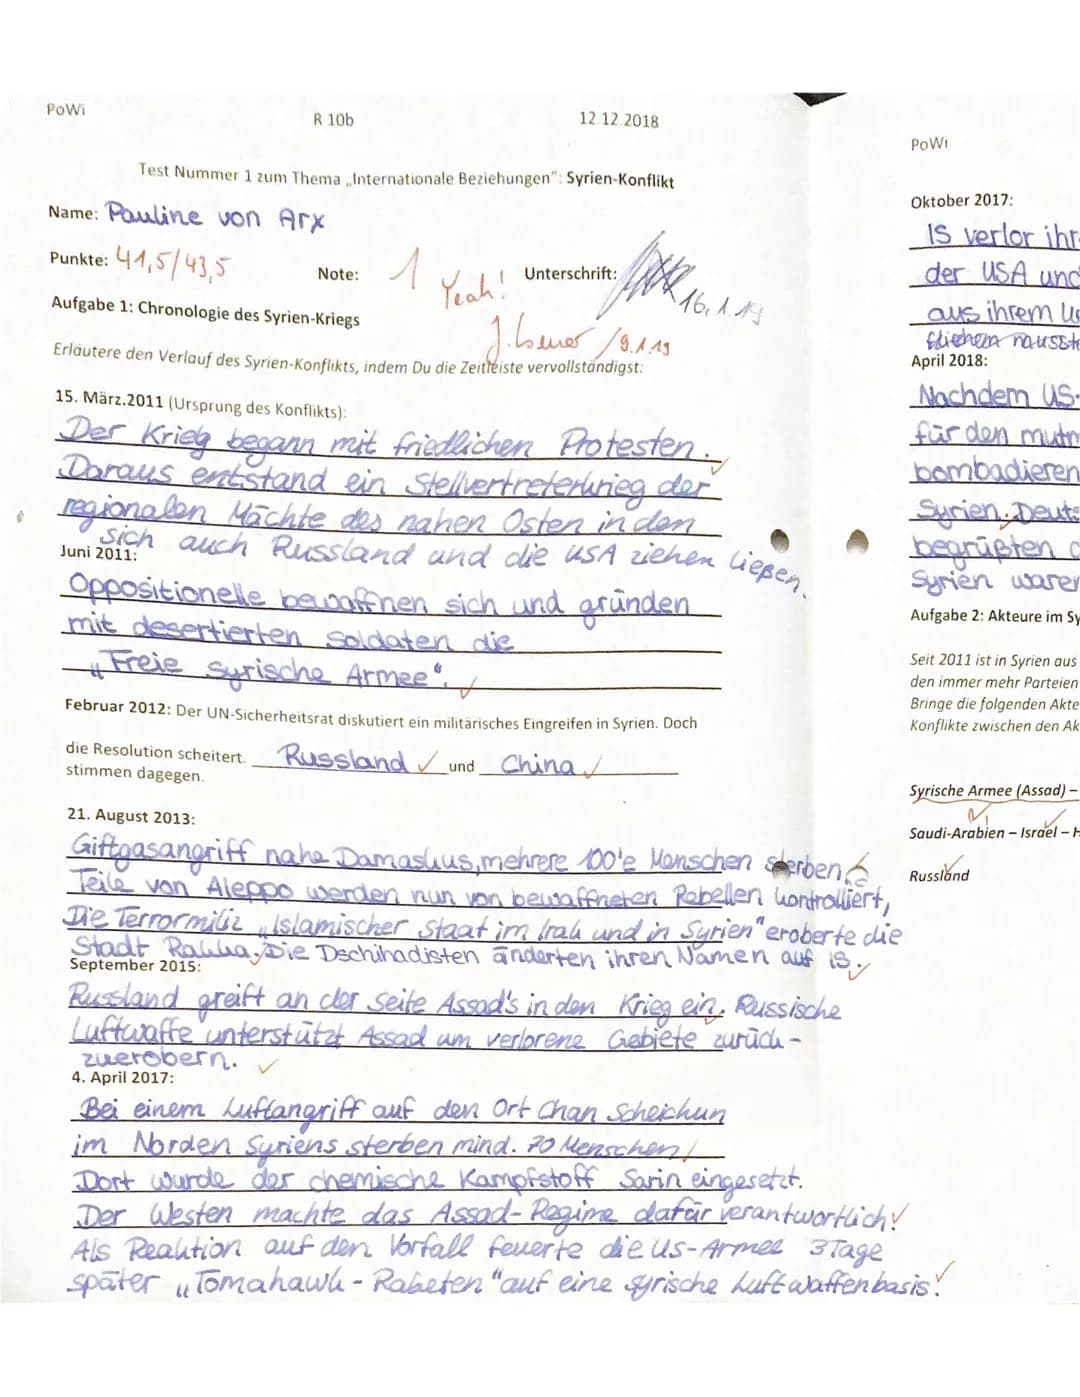 PoWi
R 10b
12.12.2018
Test Nummer 1 zum Thema „Internationale Beziehungen": Syrien-Konflikt
Name: Pauline von Arx
Punkte: 41,5/43,5
Note: 1 Yeah!
Unterschrift:
16.1.19
19.1.19
Aufgabe 1: Chronologie des Syrien-Kriegs
Erläutere den Verlauf des Syrien-Konflikts, indem Du die Zeitleiste vervollständigst:
15. März.2011 (Ursprung des Konflikts):
Der Krieg begann mit friedlichen Protesten.
Daraus entstand ein Stellvertreterkrieg der
regionalen Mächte des nahen Osten in den
sich auch Russland und die USA ziehen ließen.
Juni 2011:
Oppositionelle bewaffnen sich und gründen
mit desertierten Soldaten die
„Freie Syrische Armee".
Februar 2012: Der UN-Sicherheitsrat diskutiert ein militärisches Eingreifen in Syrien. Doch
die Resolution scheitert. Russland und China
stimmen dagegen.
21. August 2013:
Giftgasangriff nahe Damaskus, mehrere 100'e Menschen sterben
Teile von Aleppo werden nun von bewaffneten Rebellen kontrolliert,
Die Terrormiliz „Islamischer Staat im Irak und in Syrien" eroberte die
Stadt Rakka. Die Dschihadisten änderten ihren Namen auf IS.
September 2015:
Russland greift an der Seite Assad's in den Krieg ein. Russische
Luftwaffe unterstützt Assad um verlorene Gebiete zurück-
zuerobern.
4. April 2017:
Bei einem Luftangriff auf den Ort Chan Scheichun
im Norden Syriens sterben mind. 70 Menschen
Dort wurde der chemische Kampfstoff Sarin eingesetzt.
Der Westen machte das Assad-Regime dafür verantwortlich.
Als Reaktion auf den Vorfall feuerte die US-Armee 3 Tage
später „Tomahawk-Raketen" auf eine syrische Luftwaffenbasis.
PoWi
Oktober 2017:
IS verlor ihr
der USA und
aus ihrem
fliehen
April 2018:
Nachdem US-
für den mutm
bombadieren
Syrien. Deuts
begrüßten
Syrien waren
Aufgabe 2: Akteure im Sy
Seit 2011 ist in Syrien aus
den immer mehr Parteien
Bringe die folgenden Akte
Konflikte zwischen den Ak
Syrische Armee (Assad) –
Saudi-Arabien – Israel – H
Russland